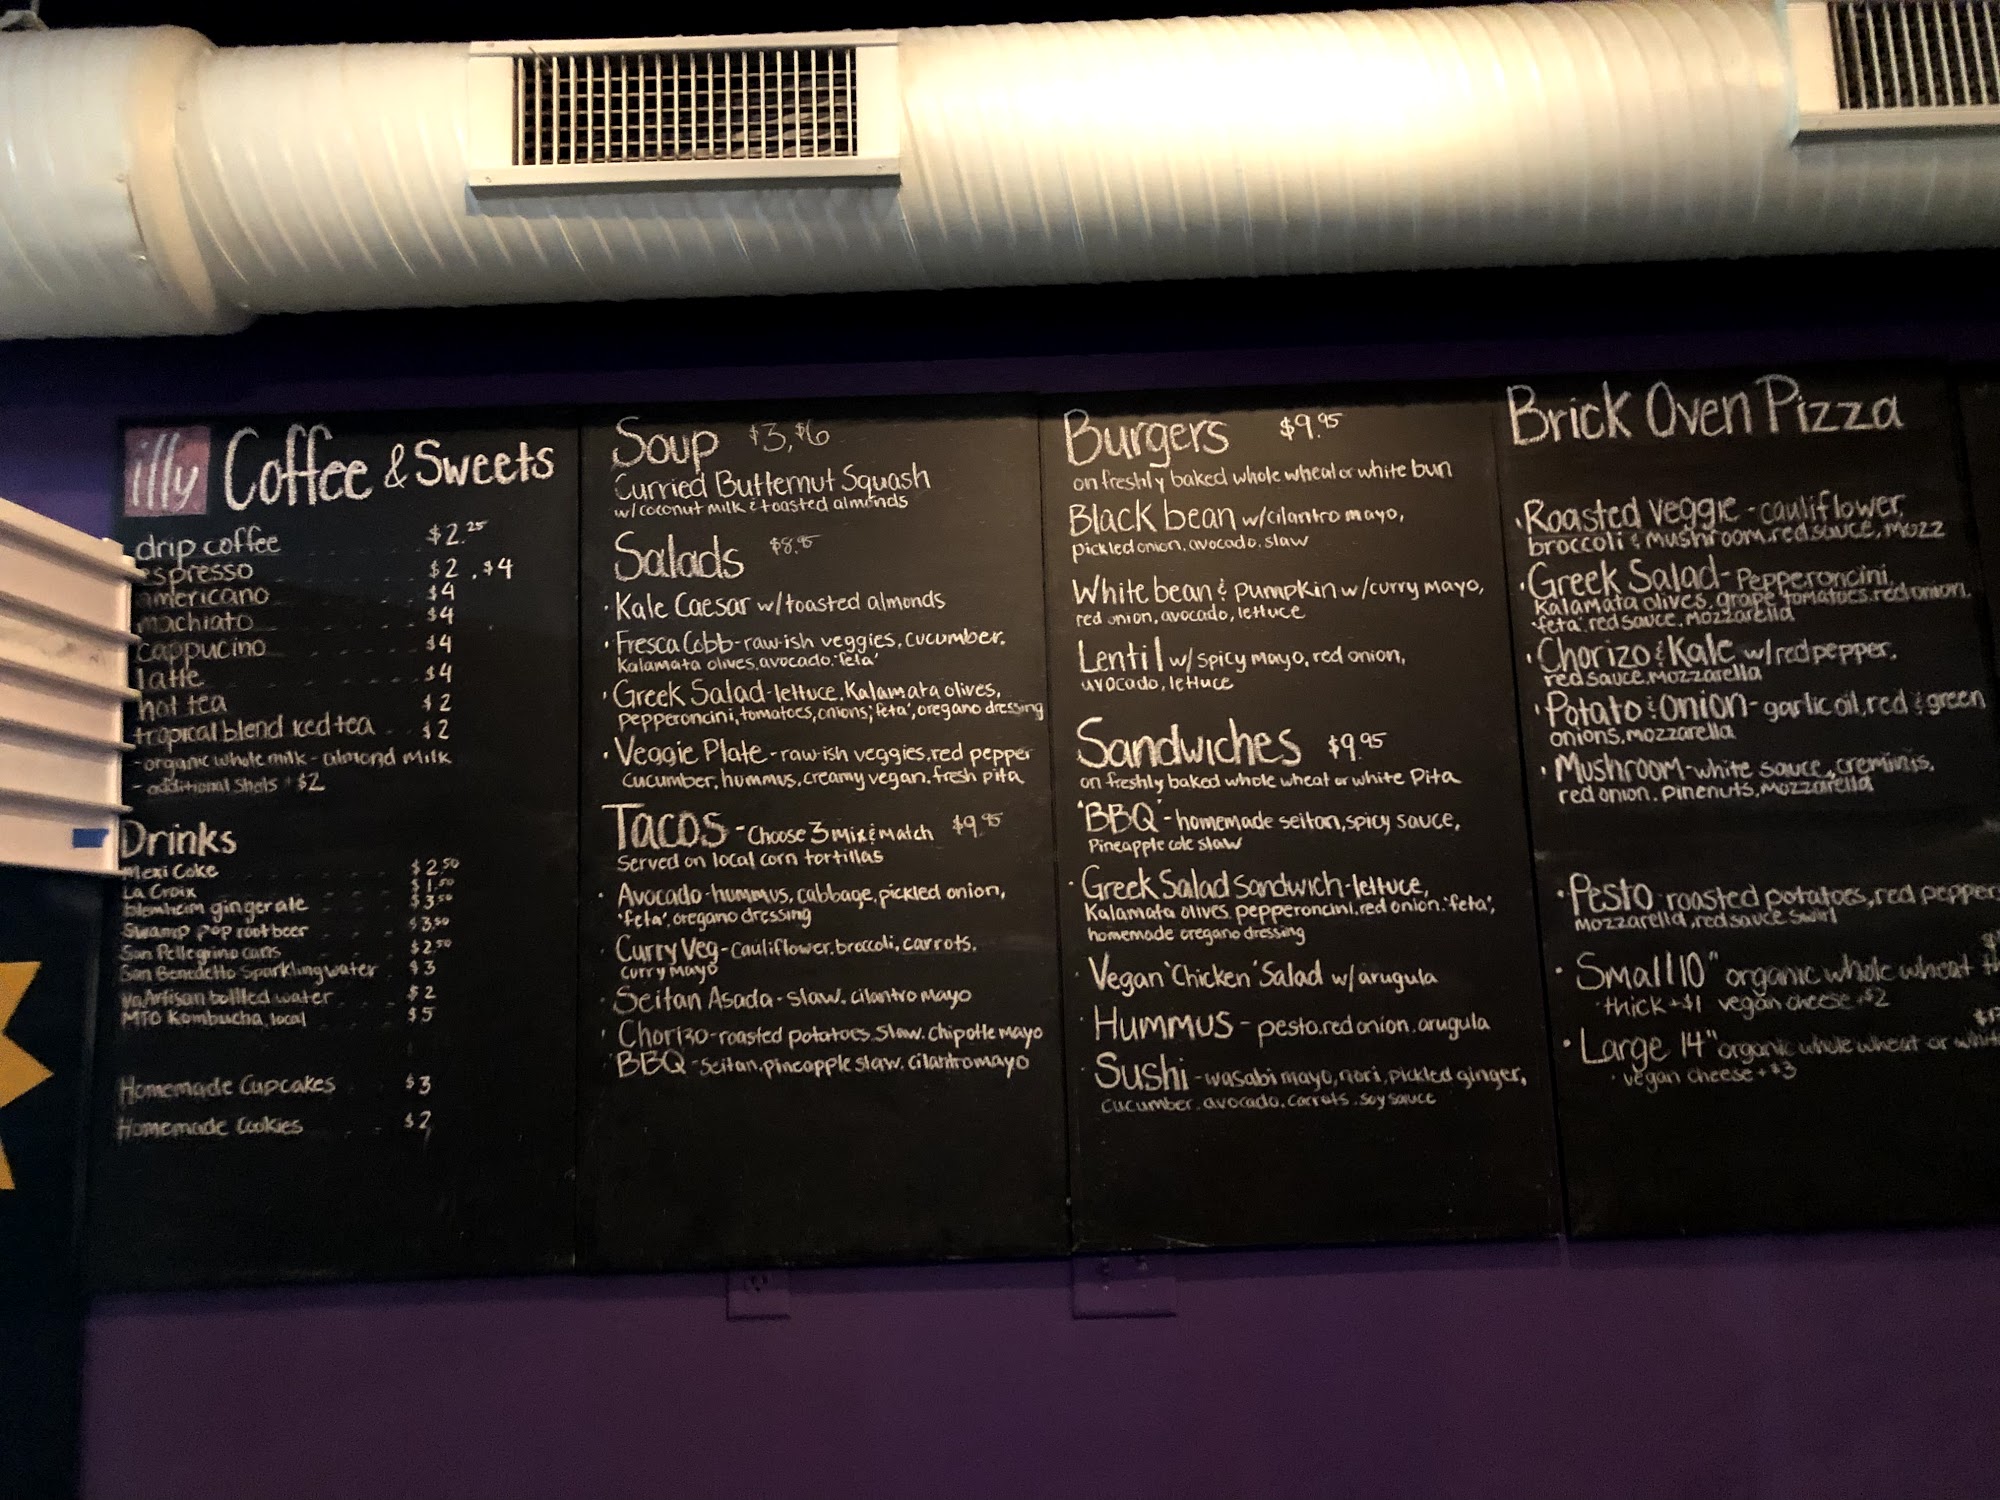 illy Coffee & Sweets
drip coffee $2.25
espresso $2, $4
americano $4
machiato $4
cappucino $4
latte $4
hot tea $2
tropical blend iced tea $2
- organic whole milk - almond milk
- additional shots + $2
Drinks
Mexi Coke $2.50
La Croix $1.50
blenheim ginger ale $3.50
Swamp pop root beer $3.50
San Pellegrino cans $2.50
San Benedetto Sparkling water $3
vaArtisan bottled water $2
MTO Kombucha, local $5
Homemade Cupcakes $3
Homemade Cookies $2
Soup $3, $6
Curried Butternut Squash
w/coconut milk & toasted almonds
Salads $8.95
• Kale Caesar w/toasted almonds
• Fresca Cobb-raw-ish veggies, cucumber,
Kalamata olives, avocado, 'feta'
• Greek Salad-lettuce, Kalamata olives,
pepperoncini, tomatoes, onions, 'feta', oregano dressing
• Veggie Plate-raw-ish veggies, red pepper
cucumber, hummus, creamy vegan, fresh pita
Tacos - Choose 3 Mix & Match $9.95
Served on local corn tortillas
• Avocado-hummus, cabbage, pickled onion,
'feta', oregano dressing
• Curry Veg-cauliflower, broccoli, carrots,
curry mayo
• Seitan Asada-slaw, cilantro mayo
• Chorizo-roasted potatoes, slaw, chipotle mayo
• BBQ-Seitan, pineapple slaw, cilantro mayo
Burgers $9.95
on freshly baked whole wheat or white bun
Black bean w/cilantro mayo,
pickled onion, avocado, slaw
White bean & pumpkin w/curry mayo,
red onion, avocado, lettuce
Lentil w/spicy mayo, red onion,
avocado, lettuce
Sandwiches $9.95
on freshly baked whole wheat or white Pita
• 'BBQ'-homemade seitan, spicy sauce,
Pineapple cole slaw
• Greek Salad Sandwich-lettuce,
Kalamata olives, pepperoncini, red onion, 'feta',
homemade oregano dressing
• Vegan 'Chicken' Salad w/arugula
• Hummus - pesto, red onion, arugula
• Sushi-wasabi mayo, nori, pickled ginger,
cucumber, avocado, carrots, soy sauce
Brick Oven Pizza
• Roasted Veggie-cauliflower,
broccoli & mushroom, red sauce, mozz
• Greek Salad-Pepperoncini,
Kalamata olives, grape tomatoes, red onion,
'feta', red sauce, mozzarella
• Chorizo & Kale w/red pepper,
red sauce, mozzarella
• Potato & Onion-garlic oil, red & green
onions, mozzarella
• Mushroom-white sauce, creminis,
red onion, pinenuts, mozzarella
• Pesto-roasted potatoes, red pepper
mozzarella, red sauce swirl
• Small 10" organic whole wheat
• thick +$1 vegan cheese +$2
• Large 14" organic whole wheat or
• vegan cheese +$3